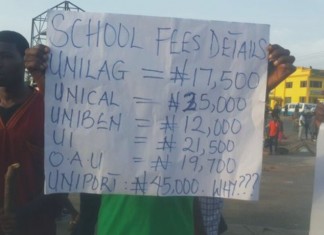 SCHOOL FEES DETAILS
UNILAG = ₦17,500
UNICAL = ₦25,000
UNIBEN = ₦12,000
UI = ₦21,500
O.A.U = ₦19,700
UNIPORT: ₦45,000. WHY???